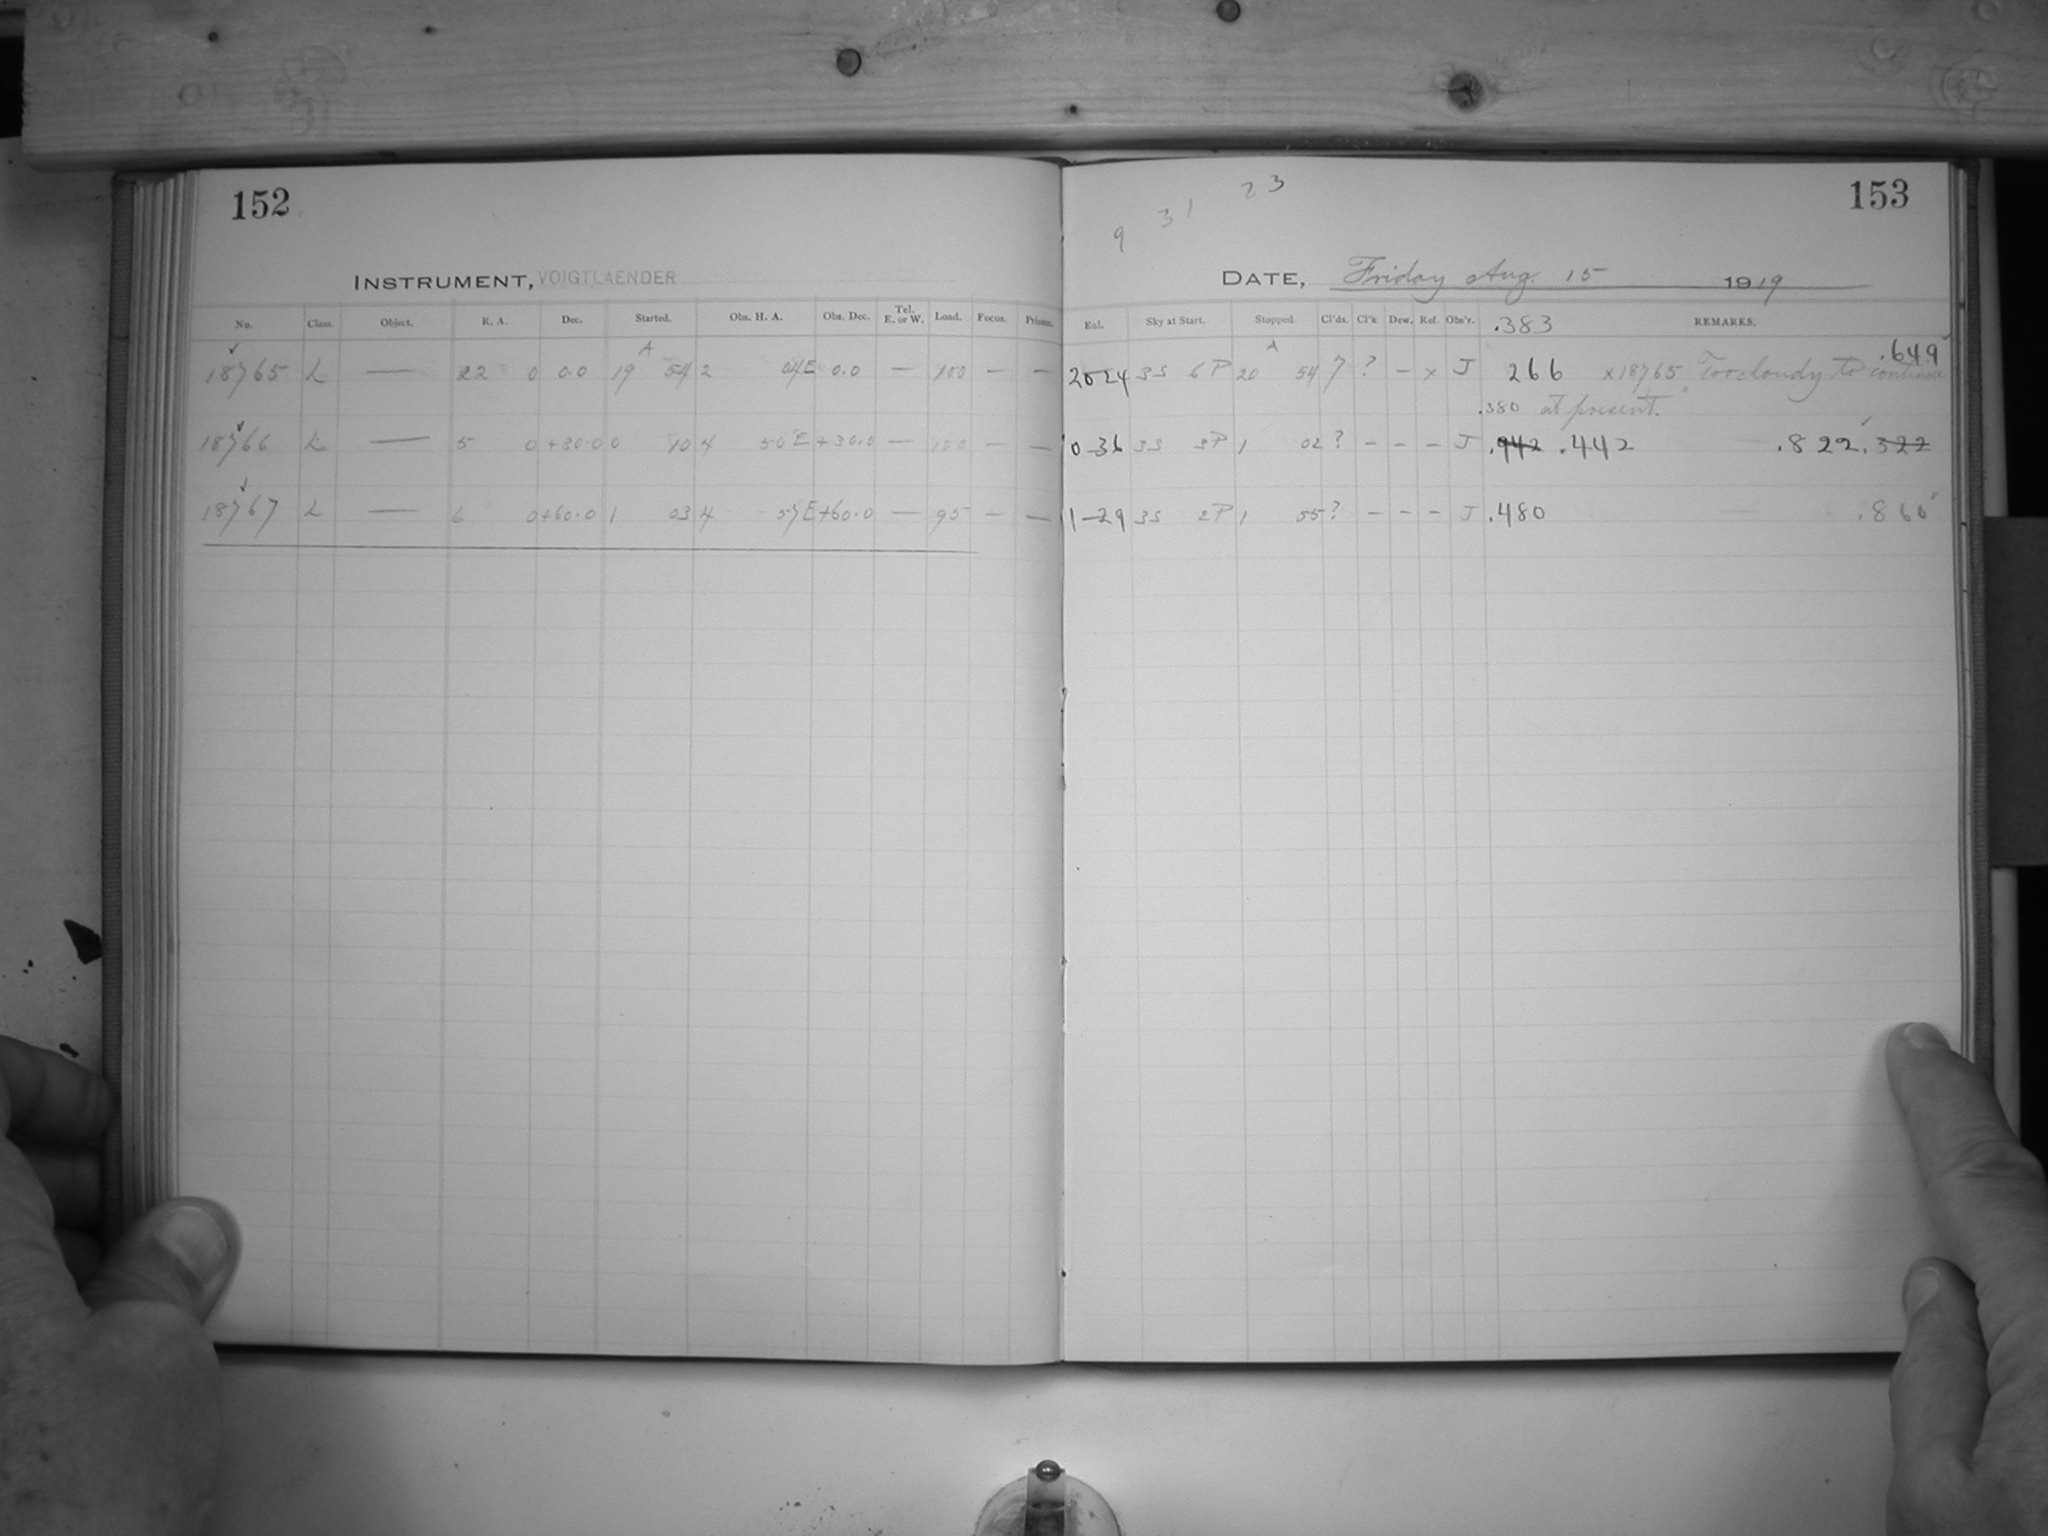 152
INSTRUMENT, VOIGTLAENDER
No. Class. Object. R. A. Dec. Started. Obs. H. A. Obs. Dec. Tel. E. or W. Load. Focus. Prisms.
A
18765 L — 22 0 0.0 19 54 2 04E 0.0 — 100 — —
18766 L — 5 0 +30.0 0 10 4 50E +30.0 — 100 — —
18767 L — 6 0 +60.0 1 03 4 57E +60.0 — 95 — —
23
31
9
153
DATE, Friday Aug. 15 1919
Exl. Sky at Start. Stopped Cl'ds. Cl'k Dew. Ref. Obs'r. .383 REMARKS.
A .649
20 24 3S 6P 20 54 7 ? — x J 266 x18765 "Too cloudy to continue
.380 at present."
0 36 3S 3P 1 02 ? — — — J .942 .442 .822 .322
1 29 3S 2P 1 55 ? — — — J .480 .860